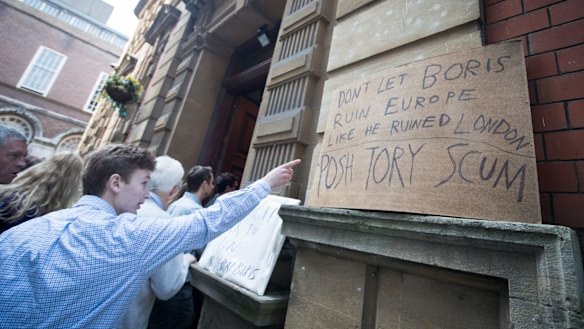 DONT LET BORIS
RUIN EUROPE
LIKE HE RUINED LONDON
POSH TORY SCUM
BORIS